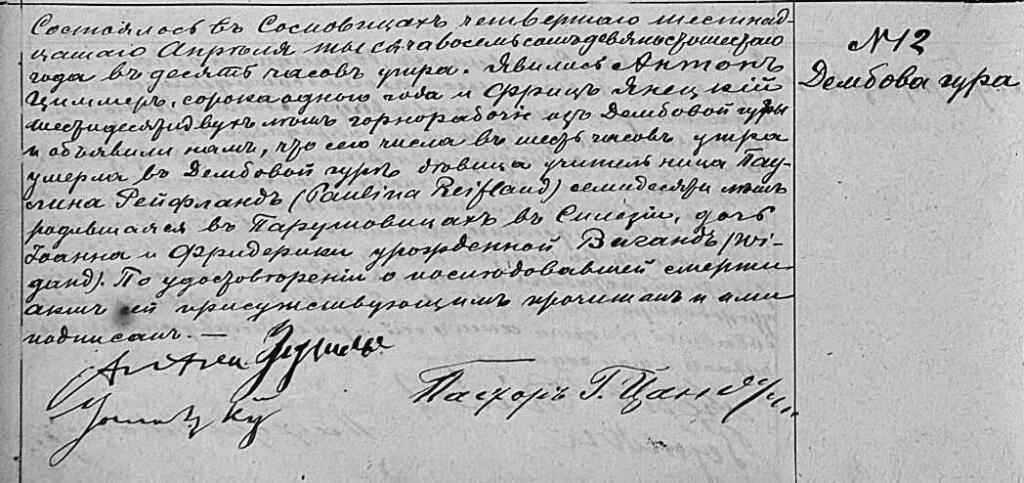 Состоялось въ Сосновицахъ четвертаго шестнад-
цатаго Апрѣля тысяча восемьсотъ девяносто шестаго
года въ десять часовъ утра. Явились Антонъ
Циммеръ, сорока одного года и Фрицъ Янецкій
шестидесяти двухъ лѣтъ горнорабочіе изъ Дембовой гуры
и объявили намъ, что сего числа въ шесть часовъ утра
умерла въ Дембовой гурѣ вдовица учительница Пау-
лина Рейфландъ (Paulina Reifland) семидесяти лѣтъ
родившаяся въ Парушовицахъ въ Силезіи, дочь
Іоанна и Фридерики урожденной Вигандъ (Wi-
gand). По удостовѣреніи о послѣдовавшей смерти
актъ сей присутствующимъ прочитанъ и ими
подписанъ. —
Пасторъ Г.
№ 12
Дембова гура